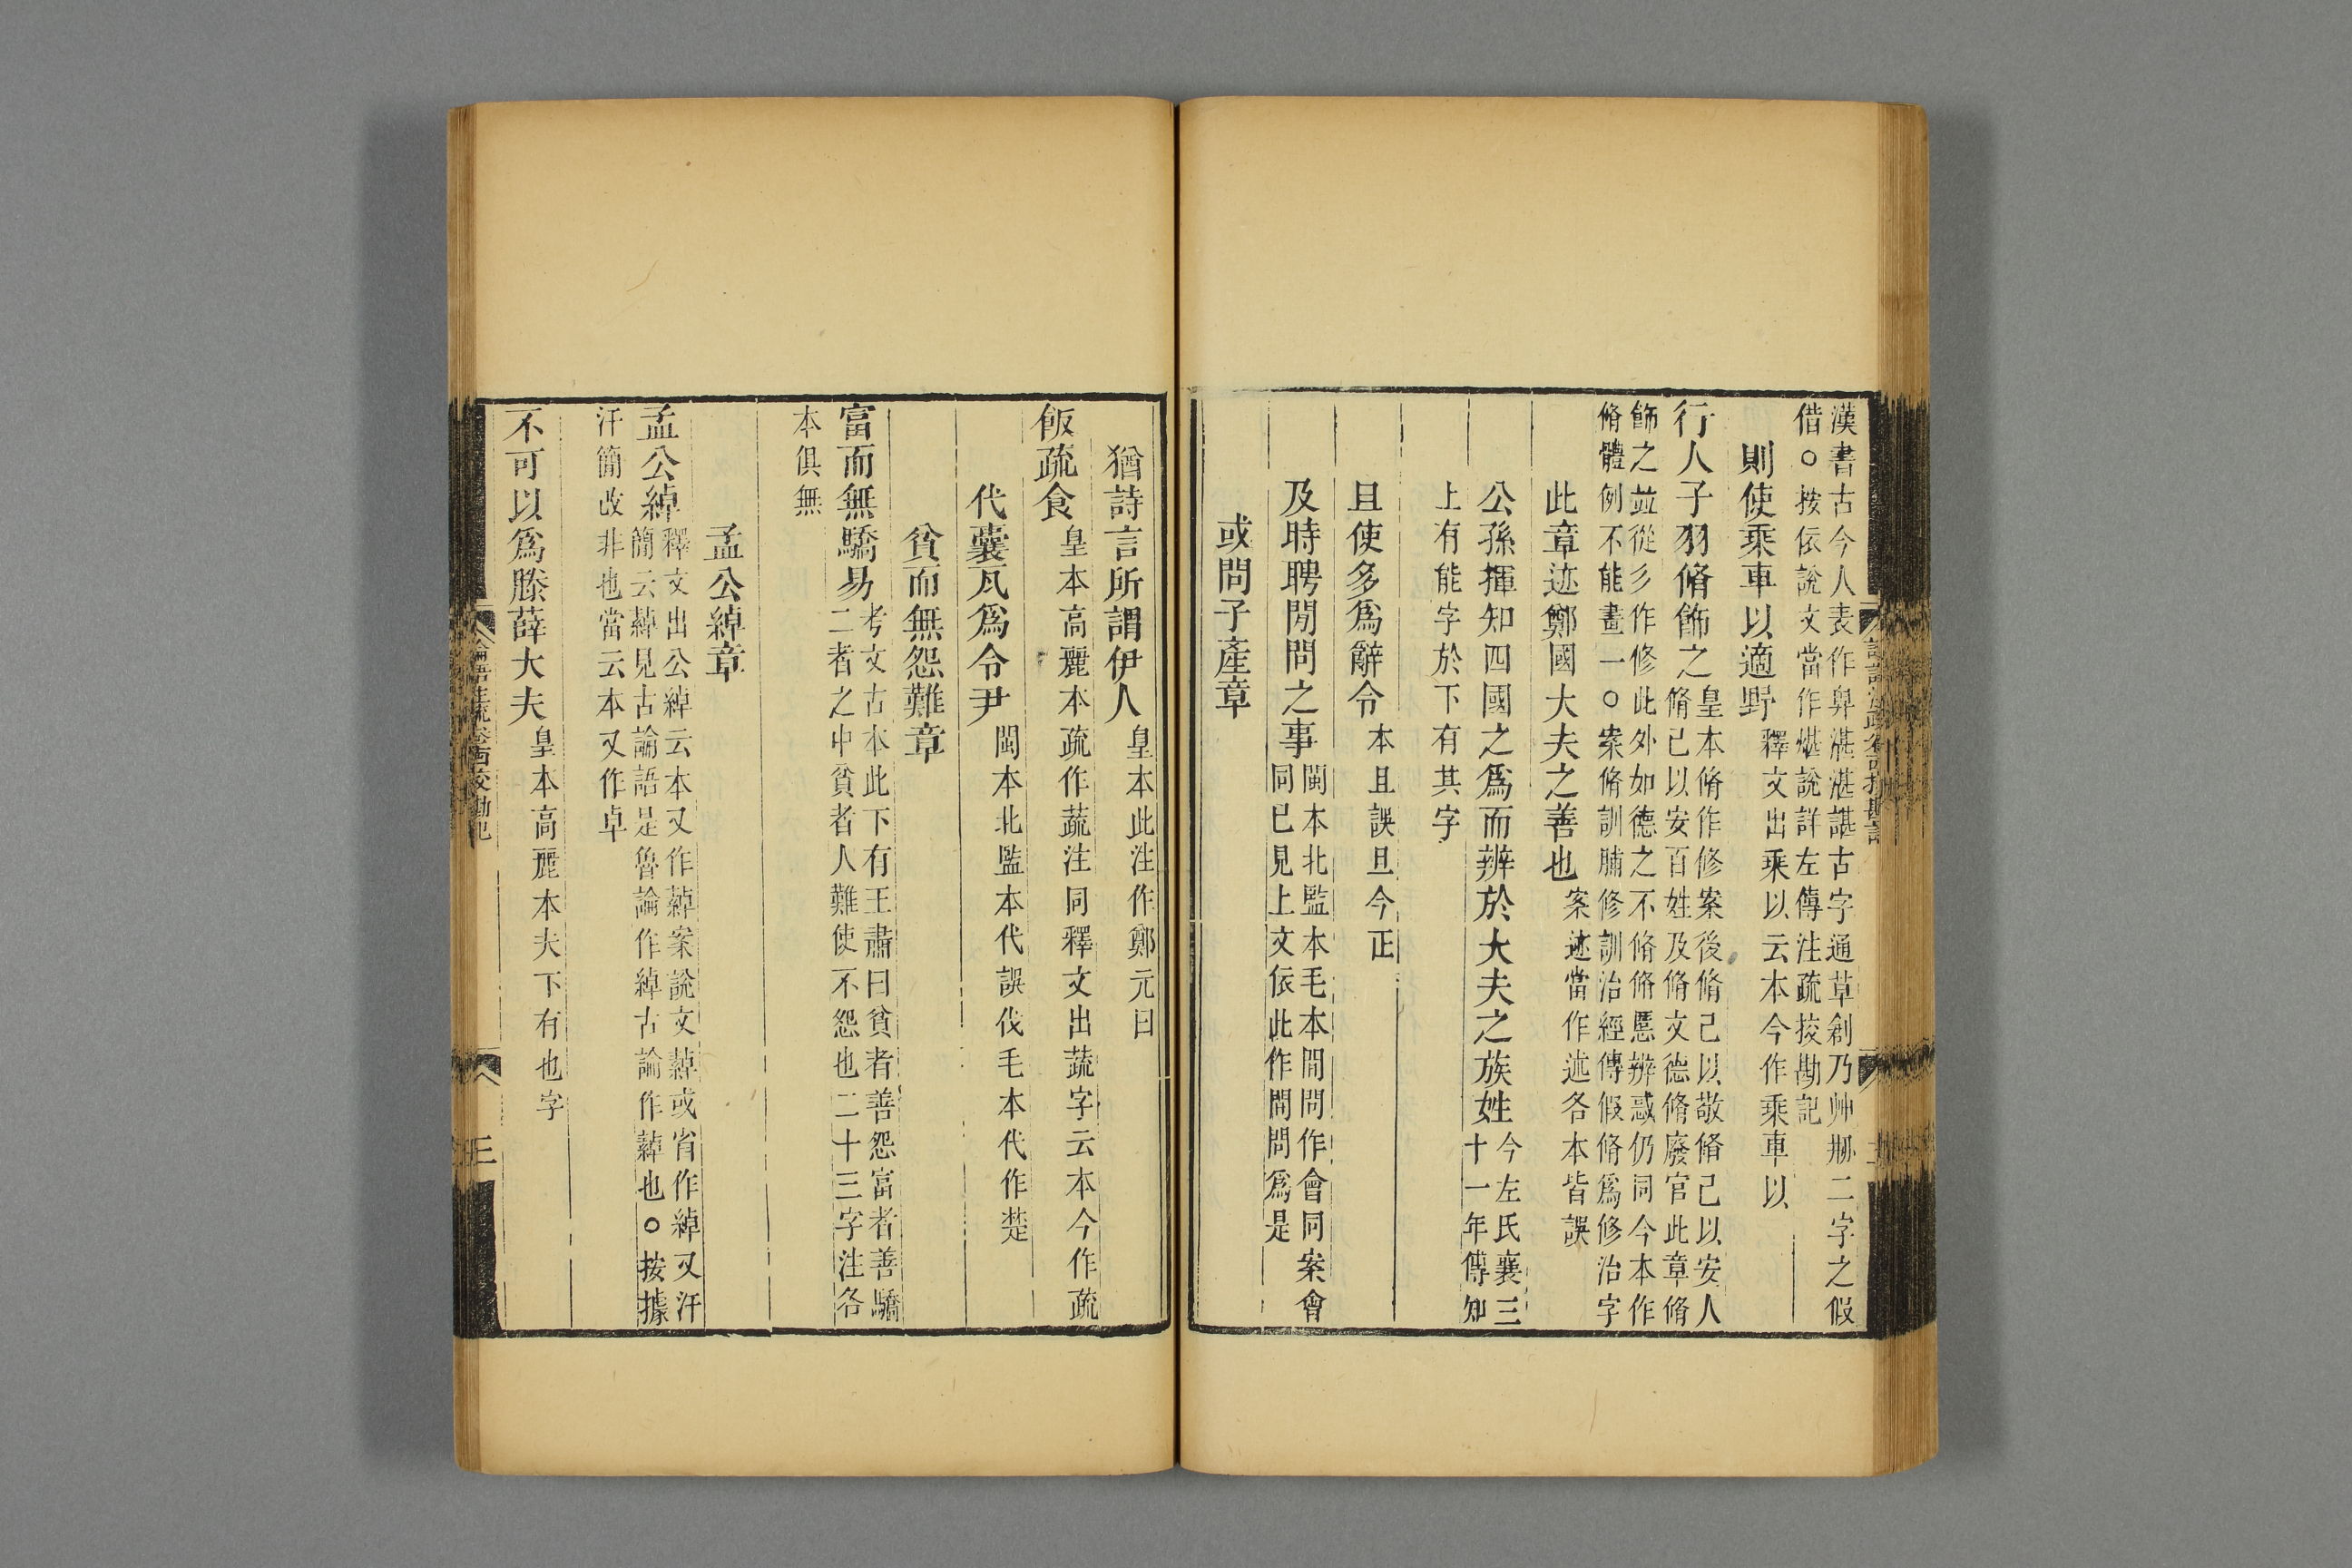 漢書古今人表作𢌿湛湛諶古字通草創乃帅刱二字之假
借○按依說文當作媅說詳左傳注疏挍勘記
則使乘車以適野釋文出乘以云本今作乘車以
行人子羽脩飾之皇本脩作修案後脩己以敬脩己以安人
脩己以安百姓及脩文德脩廢官此章脩
飾之竝從彡作修此外如德之不脩脩慝辨惑仍同今本作
脩體例不能畫一○案脩訓脯修訓治經傳假脩爲修治字
此章迹鄭國大夫之善也案迹當作述各本皆誤
公孫揮知四國之爲而辨於大夫之族姓今左氏襄三
十一年傳知
上有能字於下有其字
且使多爲辭令本且誤旦今正
及時聘閒問之事閩本北監本毛本閒問作會同案會
同已見上文依此作閒問爲是
或問子產章
猶詩言所謂伊人皇本此注作鄭元曰
飯疏食皇本高麗本疏作蔬注同釋文出蔬字云本今作疏
代囊瓦爲令尹閩本北監本代誤伐毛本代作楚
貧而無怨難章
富而無驕易考文古本此下有王肅曰貧者善怨富者善驕
二者之中貧者人難使不怨也二十三字注各
本俱無
孟公綽章
孟公綽釋文出公綽云本又作繛案說文繛或省作綽又汗
簡云繛見古論語是魯論作綽古論作繛也○按據
汗簡改非也當云本又作卓
不可以爲滕薛大夫皇本高麗本夫下有也字
論語注疏卷十四校勘記
三